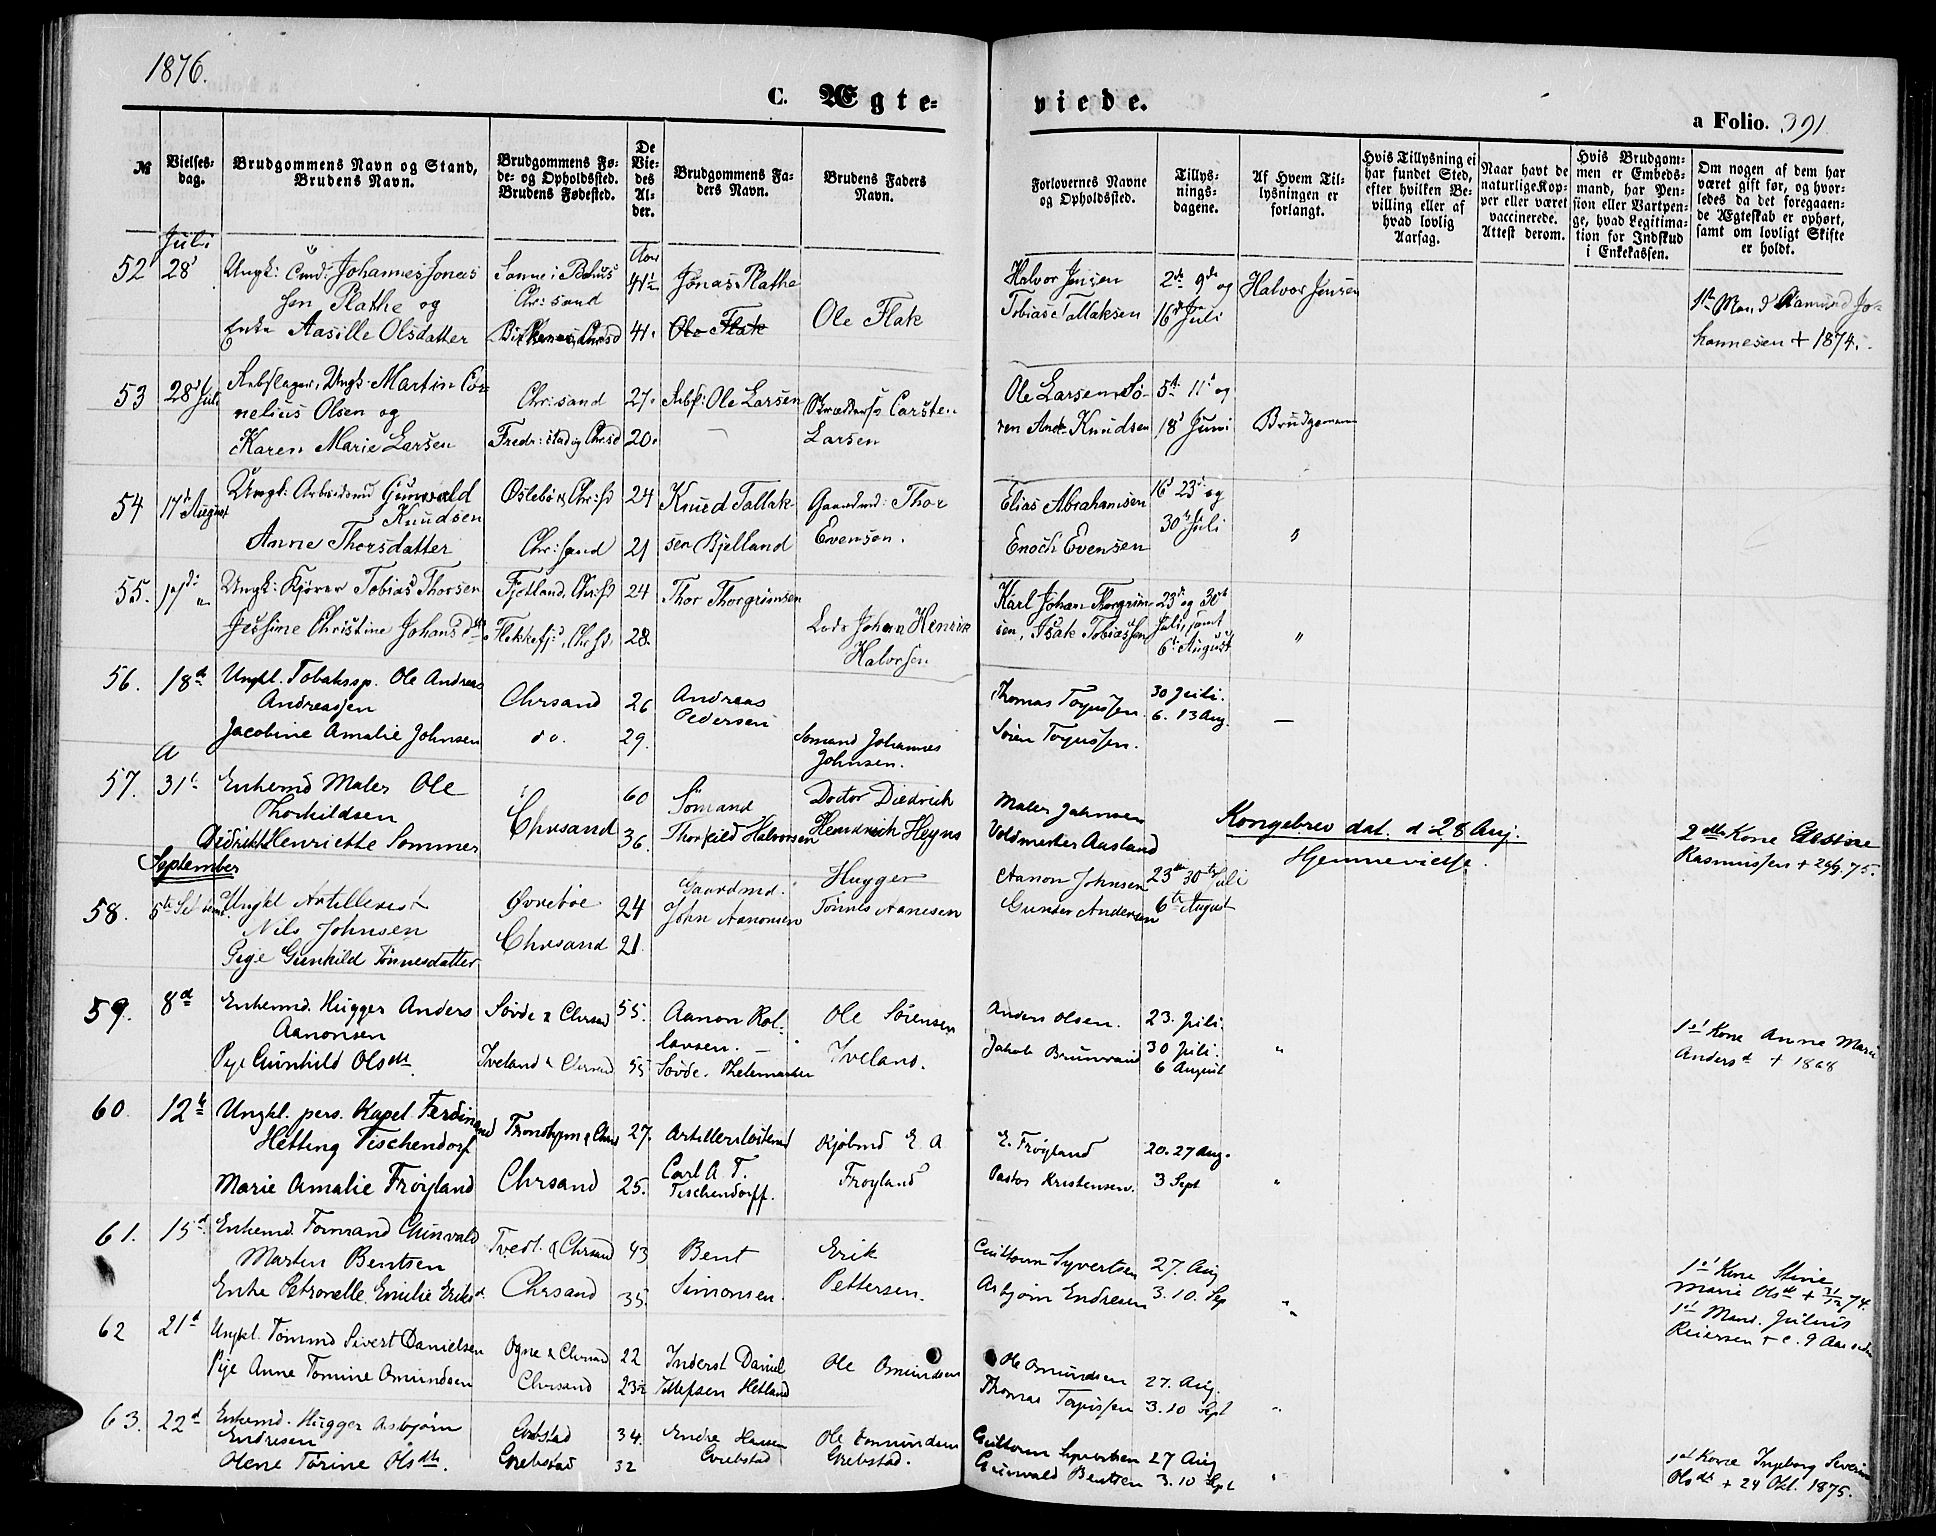 1876.
C. Ægte-
viede.
a Folio. 391.
№
Vielses-
dag.
Brudgommens Navn og Stand,
Brudens Navn.
Brudgommens Fø-
de- og Opholdssted.
Brudens Fødested.
De
Vie-
des
Al-
der.
Brudgommens Fa-
ders Navn.
Brudens Faders
Navn.
Forlovernes Navne
og Opholdssted.
Tillys-
nings-
dagene.
Af Hvem Til-
lysningen er
forlangt.
Hvis Tillysning ei
har fundet Sted,
efter hvilken Be-
villing eller af
hvad lovlig
Aarsag.
Naar havt de
naturlige Kop-
per eller været
vaccinerede.
Attest derom.
Hvis Brudgom-
men er Embeds-
mand, har Pen-
sion eller Vartpen-
ge, hvad Legitima-
tion for Indskud
i Enkekassen.
Om nogen af dem har
været gift før, og hvor-
ledes da det foregaaen-
de Ægteskab er ophørt,
samt om lovligt Skifte
er holdt.
Juli
52 28 Ungk: Johannes Jonas
sen Plathe og
Enke Aasille Olsdatter
Chr:sand
41½
41.
Jonas Plathe
Ole Flak
Ole Flak
Halvor Jensen
Tobias Tallaksen
2de 9de og
16d Juli
Halvor Jensen
1ste Mand Aamund Jo-
hannesen + 1874.
53 28d Juli Rebslager, Ungk: Martin Cor-
nelius Olsen og
Karen Marie Larsen
Chr:sand
Fredr:stad og Chrsd
27.
20.
Rebsl: Ole Larsen
Carsten
Larsen
Ole Larsen, Sø-
ren And. Knudsen
5te 11d og
18d Juni
Brudgommen
54 17d August Ungk: Arbeidsmd Gunvald
Knudsen
Anne Thorsdatter
Oslebø & Chr:sd
Chr:sand
24
21
Knud Tallak-
sen Bjelland
Gaardmd: Thor
Evensen.
Elias Abrahamsen
Enoch Evensen
16d 23d og
30te Juli
"
55. 17de " Ungk: Kjører Tobias Thorsen
Jessine Christine Johansdtr
Fjotland, Chr:sd
Flekkefj:, Chr:sd.
24
28.
Thor Thorgrimsen
Lods Johan Henrik
Halvorsen
Karl Johan Thorgrim-
sen, Isak Tobiassen
23d og 30te
Juli, samt
6te August
"
56. 18d Ungkl. Tobakssp. Ole Andreas
Andreassen
Jacobine Amalie Johnsen
Chrsand
do.
26
29.
Andreas
Pedersen
Sømand Johannes
Johnsen.
Thomas Torjussen
Søren Torjussen.
30 Juli.
6. 13 Aug.
—
57. 31t Enkemd Maler Ole
Thorkildsen
Didrikke Henriette Sommer
Chrsand
60
36.
Sømand
Thorkild Halvorsen
Doctor Diedrich
Hendrich Heyns
Maler Jahnsen
Voldmester Aasland
Kongebrev dat. d 28 Aug.
Hjemmevielse.
2den Kone
Rasmussen + 75.
September
58. 5te Septembr Ungkl Artillerist
Nils Johnsen
Pige Gunhild Tønnesdatter
Øvrebøe
Chrsand
24
21.
Gaardmd.
John Aanonsen
Hugger
Tønnes Aanesen
Aanon Johnsen
Gunder Andersen
23de 30te Juli
6te August
59. 8d Enkemd. Hugger Anders
Aanonsen
Pige Gunhild Olsdtr.
Søvde & Chrsand
Iveland & Chrsand
55.
55
Aanon Rol-
lavsen. —
Søvde. Thelemarken
Ole Sørensen
Iveland.
Anders Olsen.
Jakob Brunvand
23. Juli.
30 Juli.
6 August
"
1ste Kone Anne Marie
Andersd + 1868
60. 12te Ungkl. pers. Kapel. Ferdinand
Hetting Tischendorf
Marie Amalie Frøyland
Trondhjem & Chrsand
Chrsand
27.
25.
Artilleriløitenand
Carl A. T.
Tischendorff.
Kjøbmd E A
Frøyland
E. Frøyland
Pastor Kristensen.
20. 27 Aug.
3 Sept
"
61. 15d. Enkemd. Tømmand Gunvald
Martin Bentsen
Enke Petronelle Emilie Eriksd.
Tvedt. & Chrsand
Chrsand
43
35.
Bent
Simonsen.
Erik
Pettersen.
Guttorm Syvertsen
Asbjørn Endresen
27. Aug
3. 10. Sep
"
1ste Kone Stine
Marie Olsdtr + 31/12 74.
1ste Mand. Julius
Reiersen + c. 9 Aar siden
62 21d Ungkl. Tømmd Sivert Danielsen
Pige Anne Tomine Omundsen
Ogne & Chrsand
Chrsand
22
23½
Inderst Daniel
Tillefsen Hetland
Ole Omundsen
Ole Omundsen
Thomas Torjussen
27. Aug.
3. 10 Sept
"
63. 22d Enkemd. Hugger Asbjørn
Endresen
Olene Tørine Olsdtr.
Grebstad
Grebstad
34.
32
Endre Hansen
Grebstad
Ole Omundsen
Grebstad.
Guttorm Syvertsen
Gunvald Bentsen
27 Aug
3. 10 Sept
"
1ste Kone Ingeborg Severine
Olsdtr + 24 Okt. 1875.